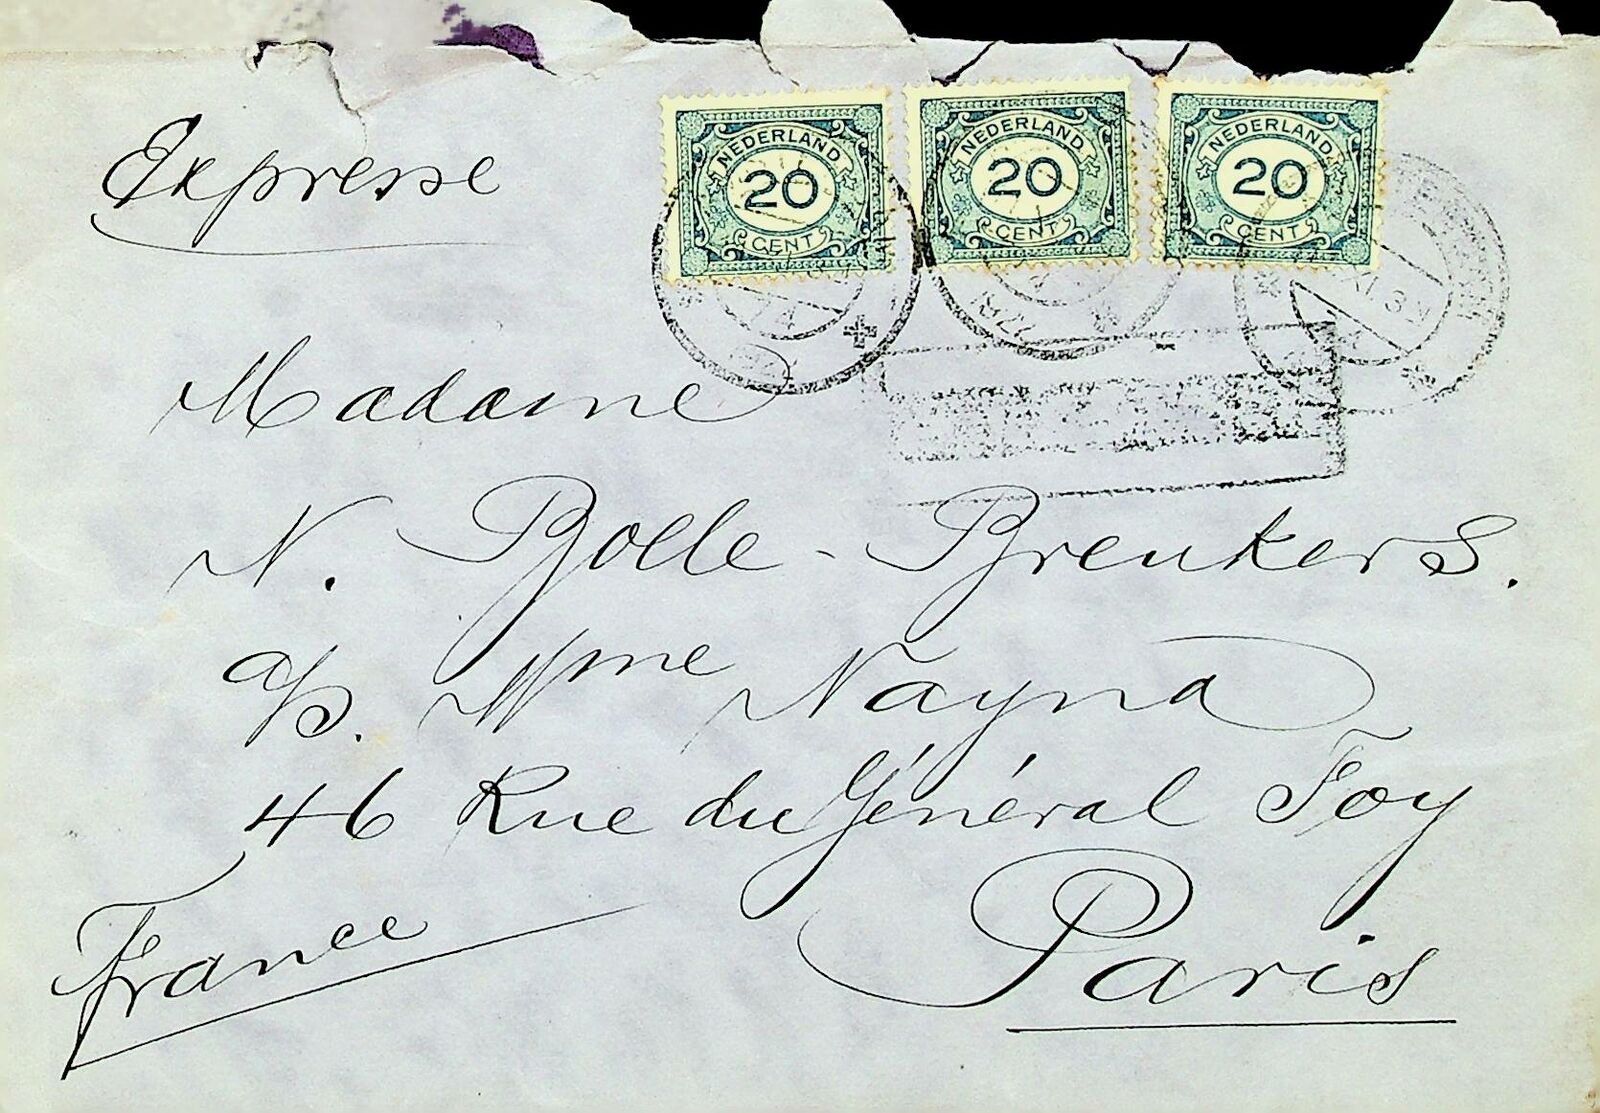 Expresse
NEDERLAND
20
CENT
NEDERLAND
20
CENT
NEDERLAND
20
CENT
Madame
N. Bolle-Breukers.
a/s. Mme Nayna
46 Rue du Général Foy
Paris
France